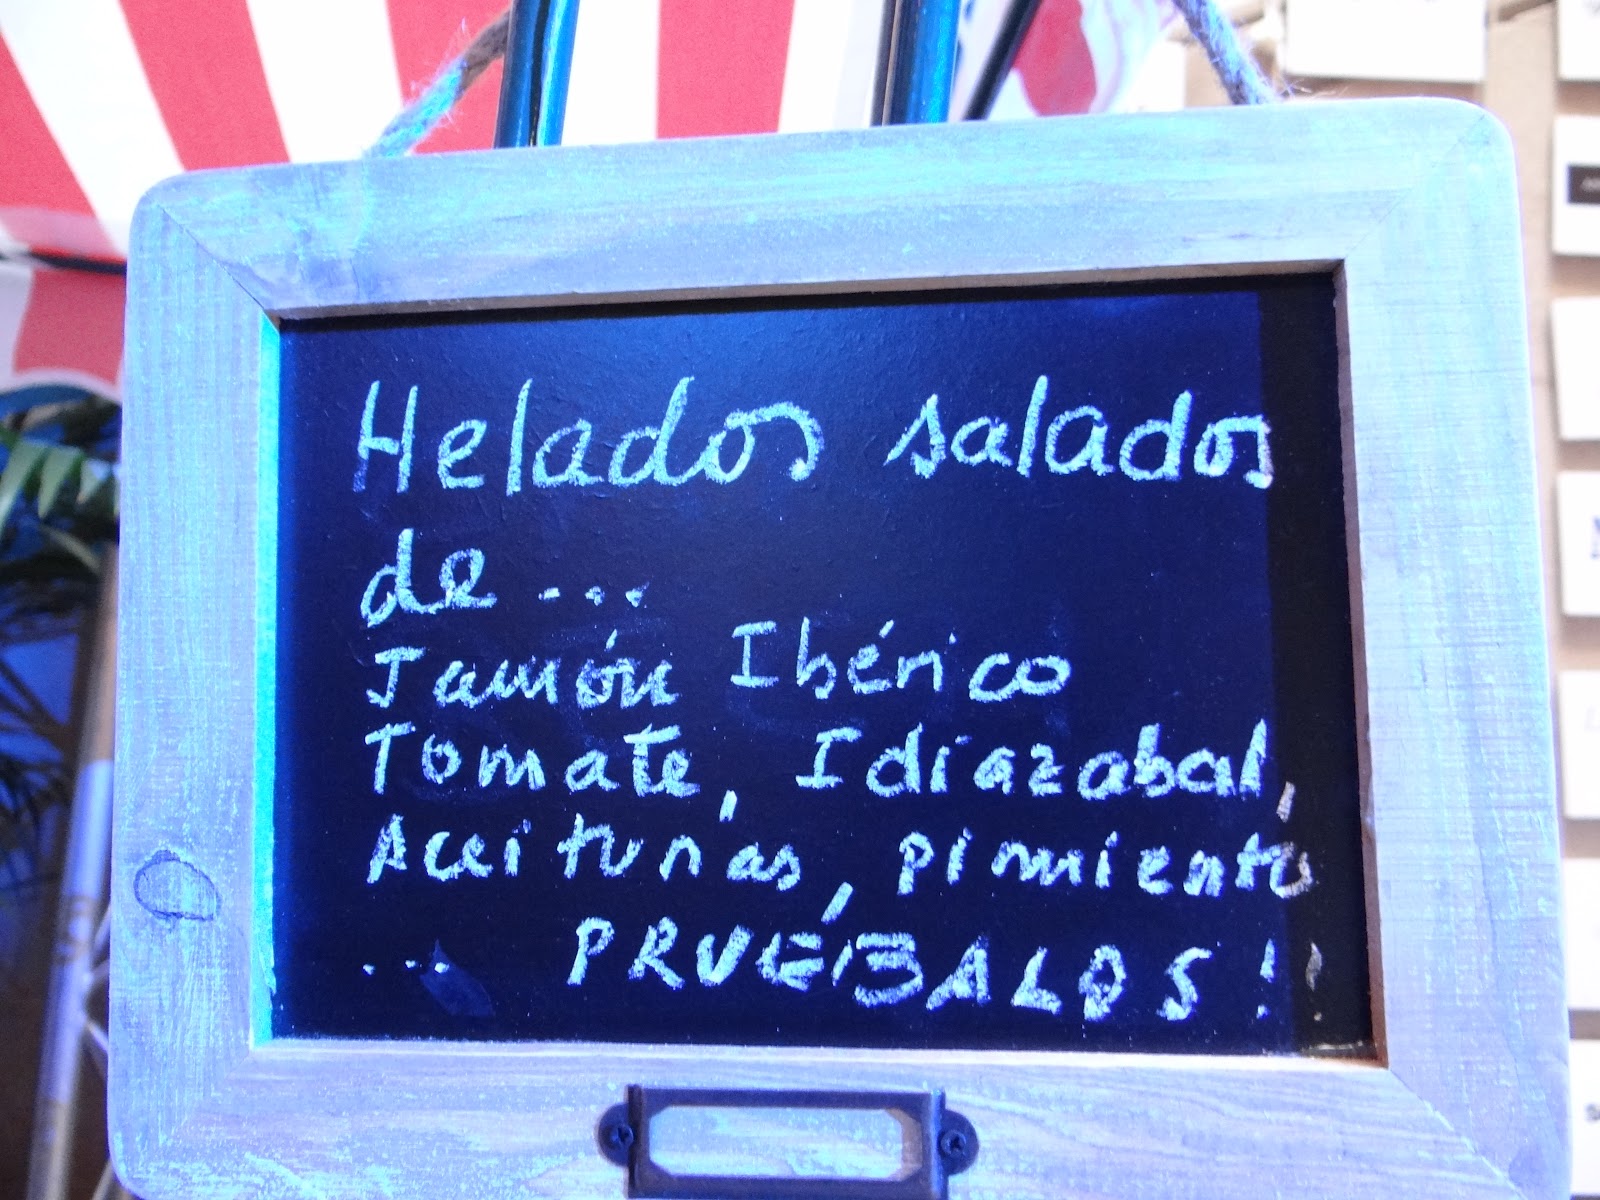 Helados salados
de ...
Jamón Ibérico
Tomate, Idiazabal,
Aceitunas, pimiento
... PRUÉBALOS!!